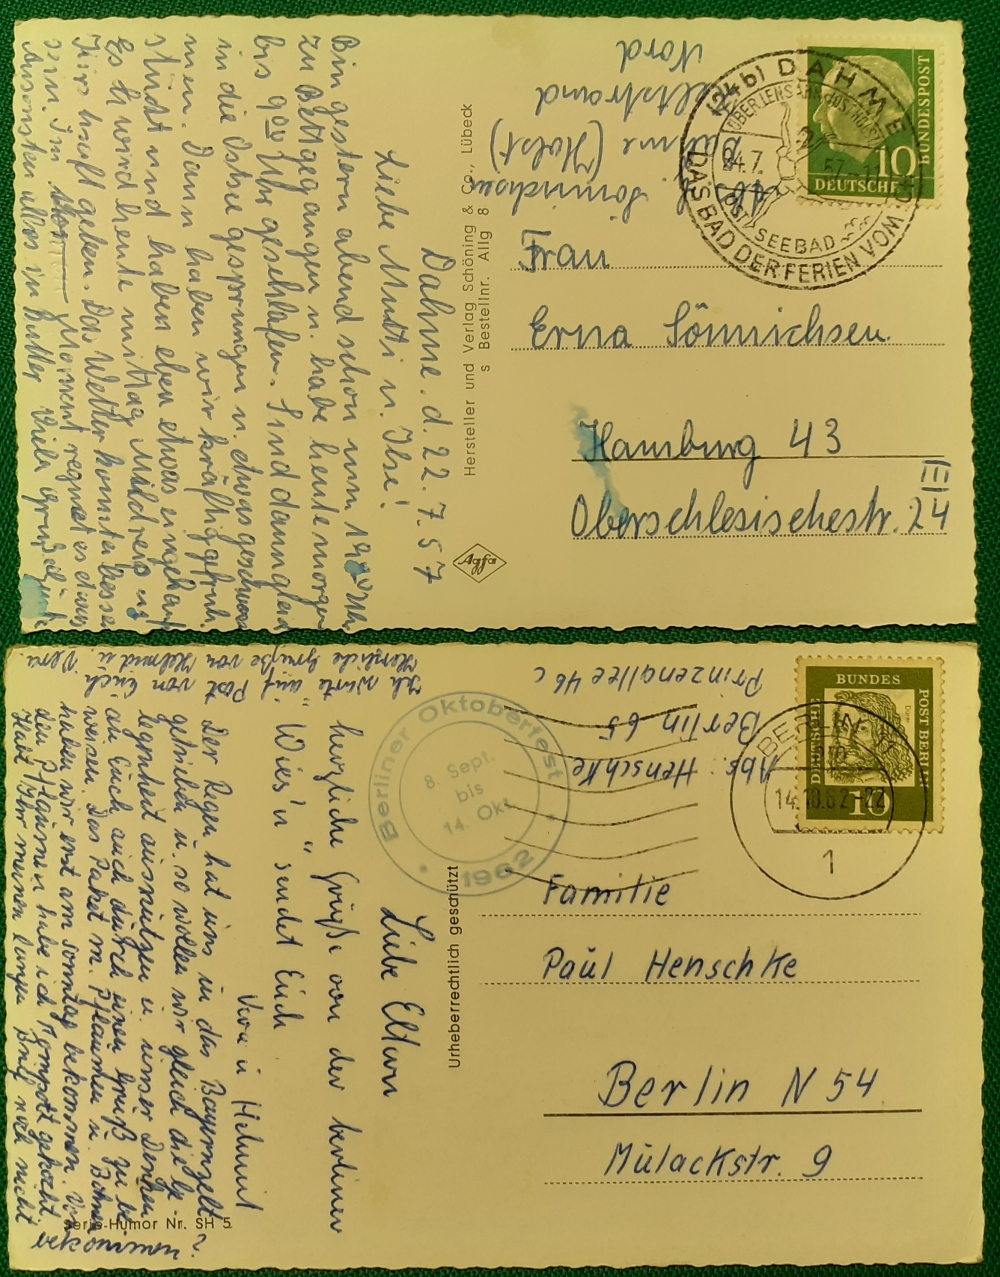 Dahme. d. 22. 7. 57
Liebe Mutti u. Ilse!
Bin gestern abend schon um 19
zu Bett gegangen u. habe heute morgen
bis 9 Uhr geschlafen. Sind dann gleich
in die Ostsee gesprungen u. etwas geschwom
men. Dann haben wir kräftig gefrüh
stückt und haben eben etwas eingekauf
Es wird heute mittag Milchreis
geben. Das Wetter könnte besse
sein. Im Moment regnet es etwas
Ansonsten alles in Butter Viele
Hersteller und Verlag Schöning & Co., Lübeck
s Bestellnr. Allg 8
Agfa
Abs. Sönnichsen
Dahme (Holst)
Zeltstrand
Nord
(24b) DAHME
DAS BAD DER FERIEN VOM
ÜBER LENSAHN
OSTSEEBAD
24.7.57
10
DEUTSCHE
BUNDESPOST
Frau
Erna Sönnichsen
Hamburg 43
Oberschlesischestr. 24
III
Ich warte auf Post von Euch
Herzliche Grüße von Helmut u. Vera
Liebe Eltern
herzliche Grüße von der berliner
"Wies'n" sendet Euch
Vera u. Helmut
Der Regen hat uns in das Bayernzelt
getrieben u. so wollen wir gleich die Ge-
legenheit ausnützen u. unser Denken
an Euch auch durch einen Gruß zu be-
weisen. Das Paket m. Pflaumen u. Bohnen
haben wir erst am Sonntag bekommen. Von
den Pflaumen habe ich Kompott gekocht.
Habt Ihr meinen langen Brief noch nicht
bekommen?
Serie-Humor Nr. SH 5
Urheberrechtlich geschützt
Berliner Oktoberfest
8. Sept.
bis
14. Okt.
1962
Abs.: Henschke
Berlin 65
Prinzenallee 46 c
BERLIN
14.10.62-22
1
BUNDES
POST BERLIN
DEUTSCHE
10
Familie
Paul Henschke
Berlin N 54
Mulackstr. 9